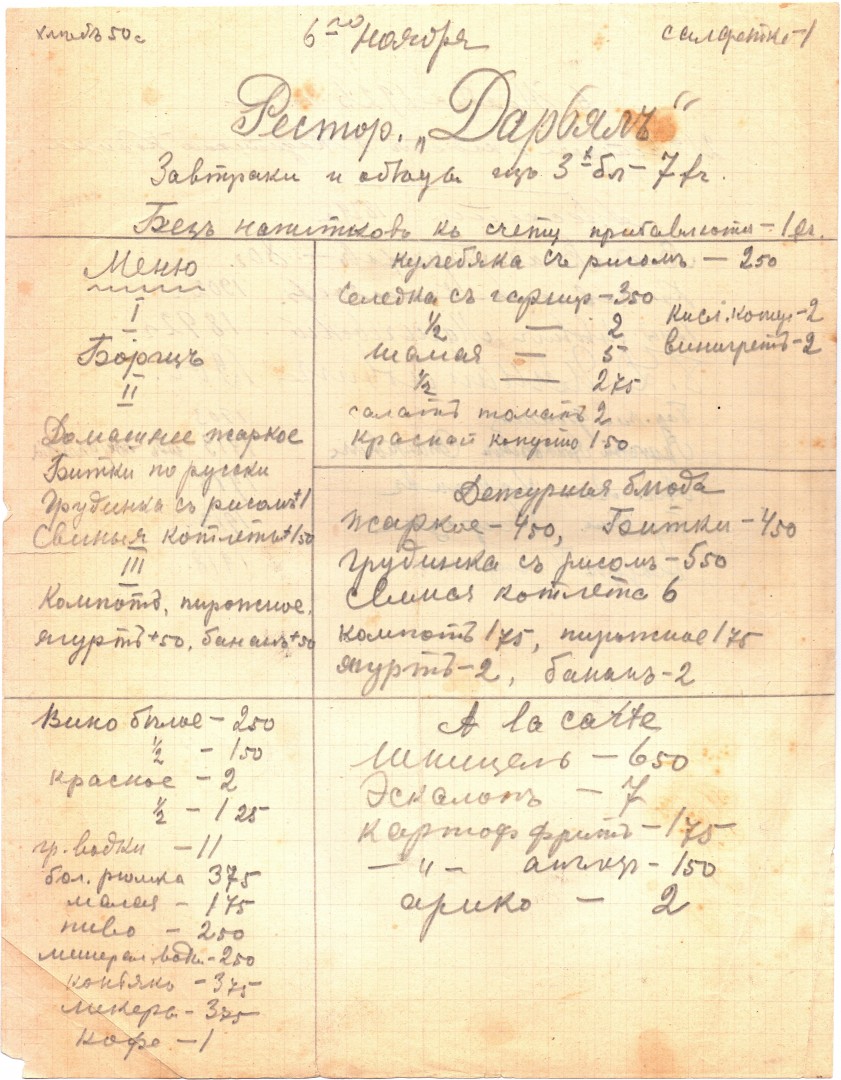 хлѣбъ 50 с
6го ноября
салфетка - 1
Рестор. „Дарьялъ“
Завтраки и обѣды изъ 3х бл - 7 fr.
Безъ напитковъ къ счету прибавляется - 1 fr.
Меню
I
Борщъ
II
Домашнее жаркое
Битки по русски
Грудинка съ рисомъ +1
Свиныя котлеты +150
III
Компотъ, пирожное,
ягуртъ +50, бананъ +50
Кулебяка съ рисомъ - 250
Селедка съ гарнир - 350
½ — 2
кисл. капус - 2
малая — 5
винигретъ - 2
½ — 275
салатъ томатъ 2
красной капусты 150
Дежурныя блюда
жаркое - 450, Битки - 450
грудинка съ рисомъ - 550
свиная котлета 6
компотъ 175, пирожное 175
ягуртъ - 2, бананъ - 2
Вино бѣлое - 250
½ - 150
красное - 2
½ - 125
гр. водки - 11
бол. рюмка 375
малая - 175
пиво - 250
минерал. вода - 250
коньякъ - 375
ликеръ - 375
кофе - 1
A la carte
Шницель - 650
Эскалопъ - 7
картоф фритъ - 175
— „ — англ - 150
арико - 2